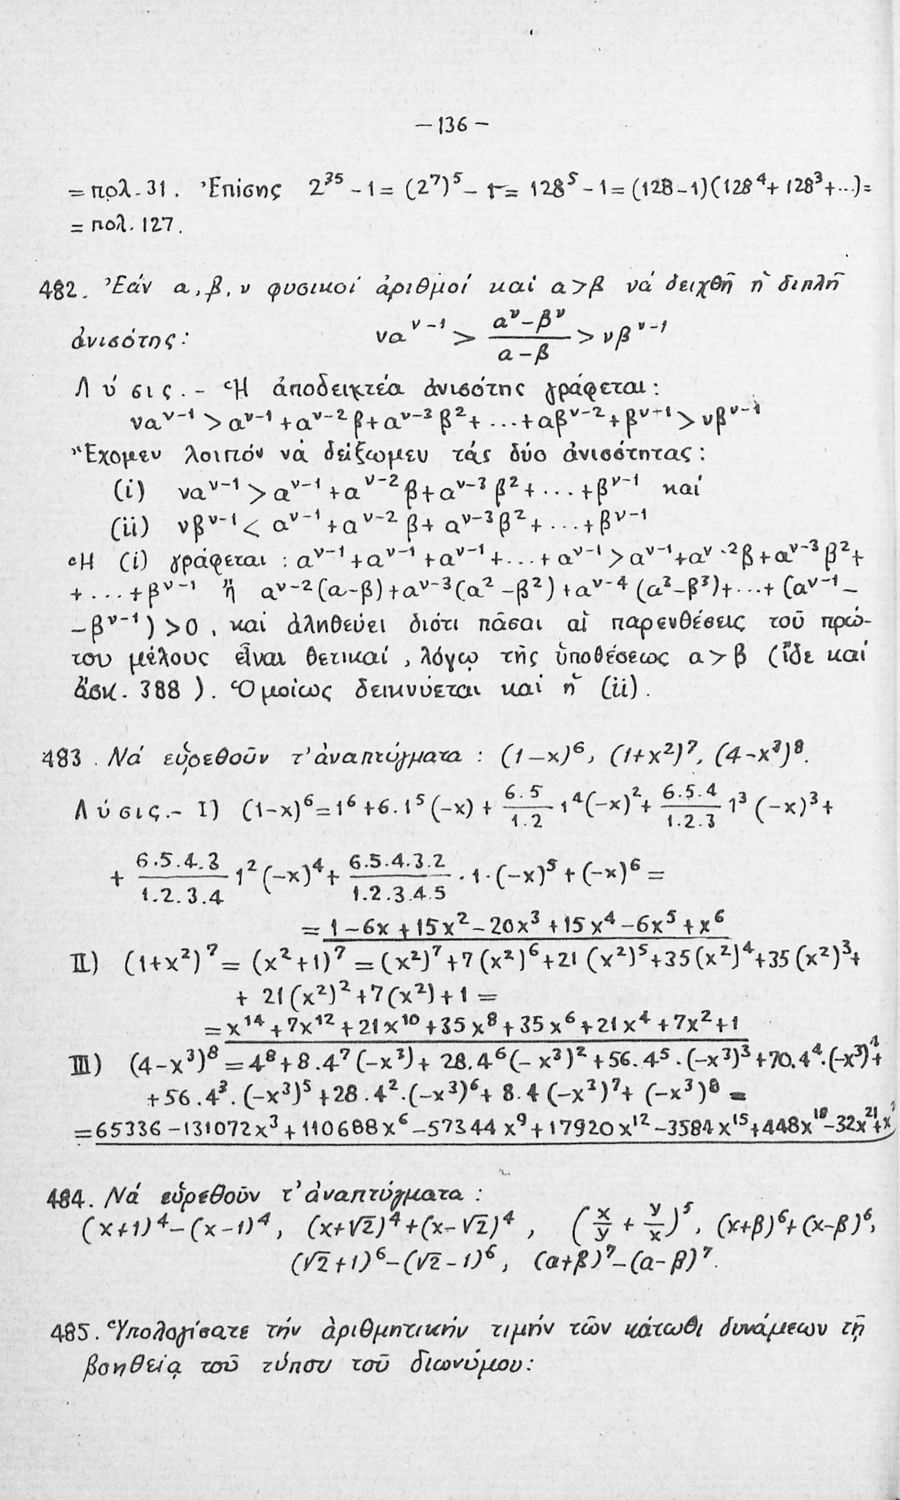 — 136 —
= πολ. 31. Ἐπίσης 2³⁵ - 1 = (2⁷)⁵ - 1 = 128⁵ - 1 = (128-1)(128⁴+128³+...)=
= πολ. 127.
482. Ἐάν α, β, ν φυσικοί ἀριθμοί καί α>β νά δειχθῆ ἡ διπλῆ
ἀνισότης: να^{ν-1} > \frac{α^ν-β^ν}{α-β} > νβ^{ν-1}
Λύσις.- Ἡ ἀποδεικτέα ἀνισότης γράφεται:
να^{ν-1} > α^{ν-1}+α^{ν-2}β+α^{ν-3}β²+...+αβ^{ν-2}+β^{ν+1} > νβ^{ν-1}
Ἔχομεν λοιπόν νά δείξωμεν τάς δύο ἀνισότητας:
(i) να^{ν-1} > α^{ν-1}+α^{ν-2}β+α^{ν-3}β²+...+β^{ν-1} καί
(ii) νβ^{ν-1} < α^{ν-1}+α^{ν-2}β+α^{ν-3}β²+...+β^{ν-1}
Ἡ (i) γράφεται: α^{ν-1}+α^{ν-1}+α^{ν-1}+...+α^{ν-1} > α^{ν-1}+α^{ν-2}β+α^{ν-3}β²+
+...+β^{ν-1} ἤ α^{ν-2}(α-β)+α^{ν-3}(α²-β²)+α^{ν-4}(α³-β³)+...+(α^{ν-1}-
-β^{ν-1})>0, καί ἀληθεύει διότι πᾶσαι αἱ παρενθέσεις τοῦ πρώ-
του μέλους εἶναι θετικαί, λόγῳ τῆς ὑποθέσεως α>β (ἴδε καί
ἄσκ. 388). Ὁμοίως δεικνύεται καί ἡ (ii).
483. Νά εὑρεθοῦν τ' ἀναπτύγματα: (1-x)⁶, (1+x²)⁷, (4-x³)⁸.
Λύσις.- I) (1-x)⁶=1⁶+6.1⁵(-x)+\frac{6.5}{1.2}1⁴(-x)²+\frac{6.5.4}{1.2.3}1³(-x)³+
+\frac{6.5.4.3}{1.2.3.4}1²(-x)⁴+\frac{6.5.4.3.2}{1.2.3.4.5}.1.(-x)⁵+(-x)⁶=
=1-6x+15x²-20x³+15x⁴-6x⁵+x⁶
II) (1+x²)⁷=(x²+1)⁷=(x²)⁷+7(x²)⁶+21(x²)⁵+35(x²)⁴+35(x²)³+
+21(x²)²+7(x²)+1=
=x¹⁴+7x¹²+21x¹⁰+35x⁸+35x⁶+21x⁴+7x²+1
III) (4-x³)⁸=4⁸+8.4⁷(-x³)+28.4⁶(-x³)²+56.4⁵.(-x³)³+70.4⁴.(-x³)⁴+
+56.4³.(-x³)⁵+28.4².(-x³)⁶+8.4(-x³)⁷+(-x³)⁸=
=65336-131072x³+110688x⁶-57344x⁹+17920x¹²-3584x¹⁵+448x¹⁸-32x²¹+x
484. Νά εὑρεθοῦν τ' ἀναπτύγματα:
(x+1)⁴-(x-1)⁴, (x+√2)⁴+(x-√2)⁴, (\frac{x}{y}+\frac{y}{x})⁵, (x+β)⁶+(x-β)⁶,
(√2+1)⁶-(√2-1)⁶, (α+β)⁷-(α-β)⁷.
485. Ὑπολογίσατε τήν ἀριθμητικήν τιμήν τῶν κάτωθι δυνάμεων τῇ
βοηθείᾳ τοῦ τύπου τοῦ διωνύμου: